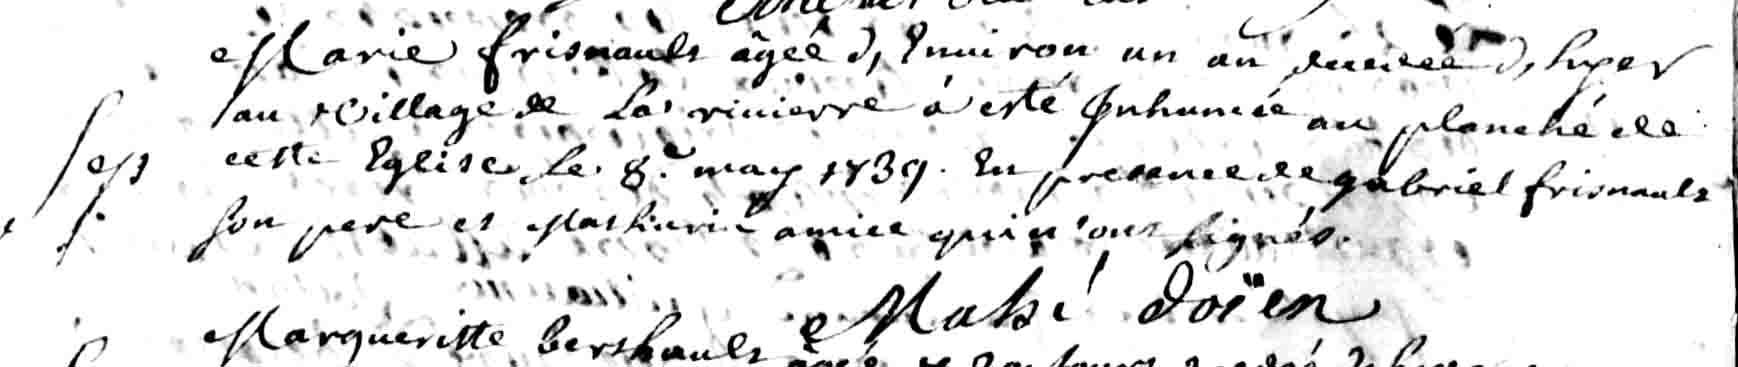 Marie frisnault âgéé d, Enuiron un an décédéé d, hyer
au Village de La rivierre à esté Inhumée au planché de
Sep cette Eglise, le 8.e may 1739. En presance de gabriel frisnault
s. son pere et Mathurin amice qui n'ont signés.
Mahé doïen
Margueritte berthault âgéé